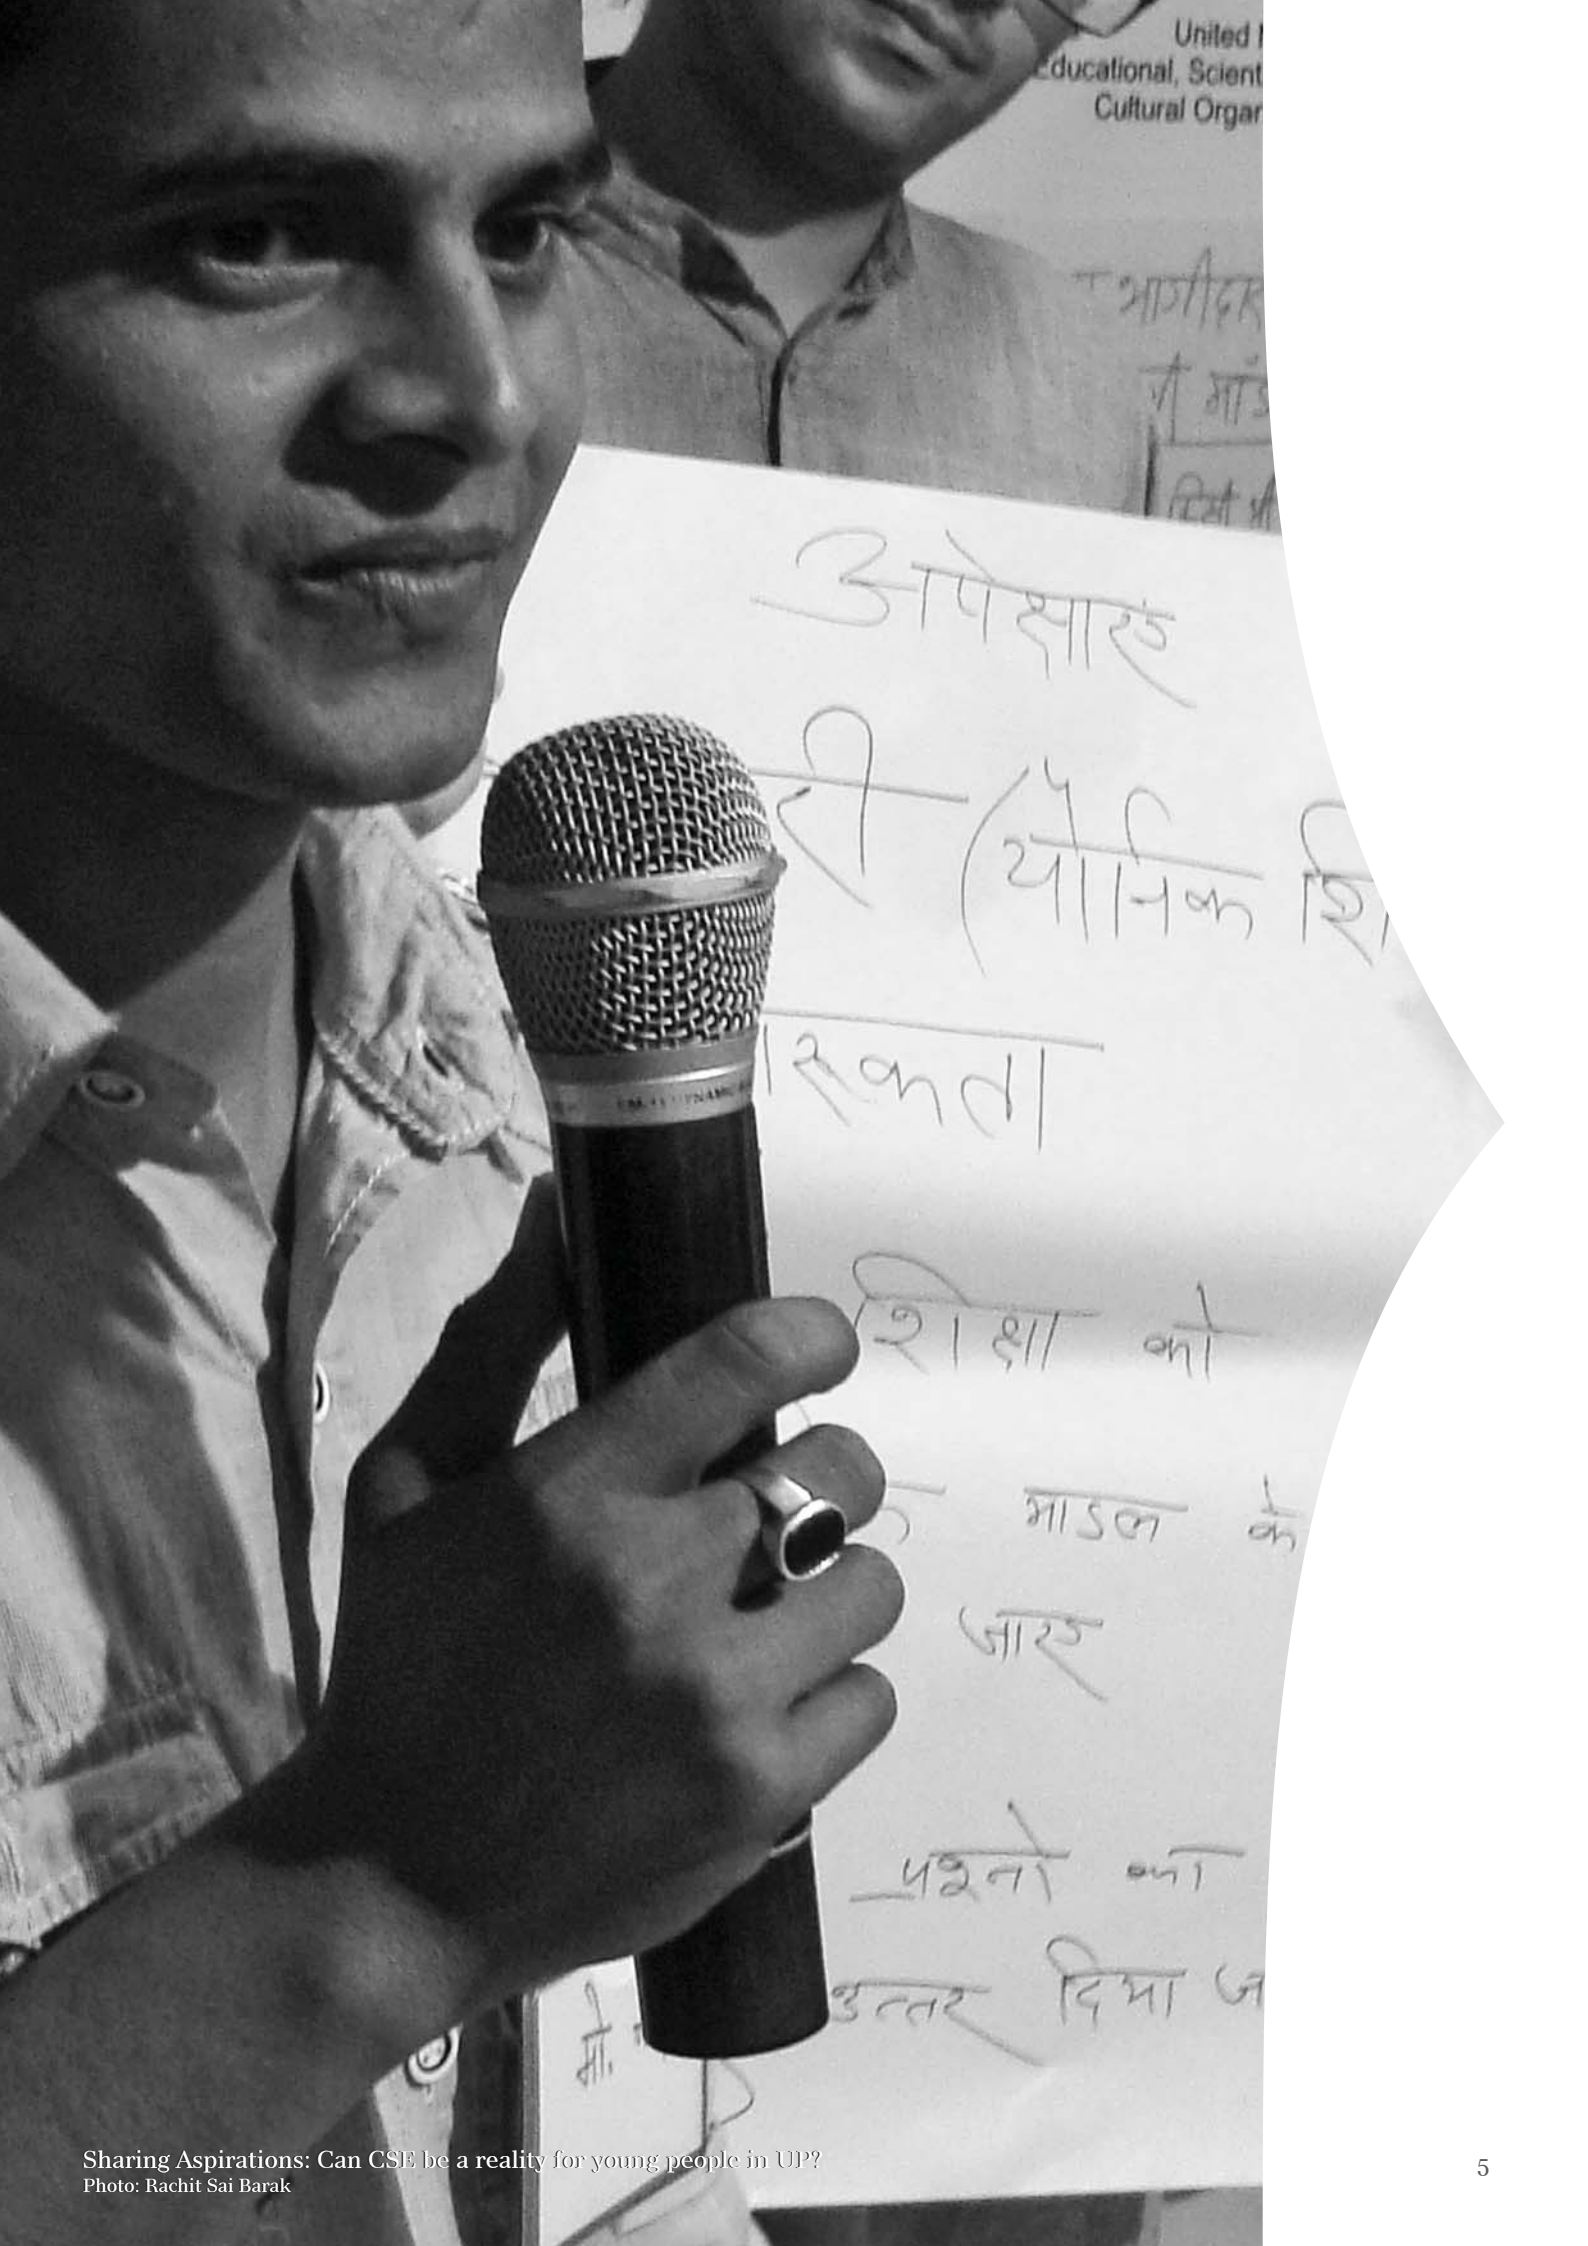 United
Educational, Scient
Cultural Organ
भागीदार
में मांड
अपेक्षाएं
री - (यौनिक शि
रूकता
शिक्षा को
माडल के
जाए
प्रश्नो का
उत्तर दिया ज
मो.
Sharing Aspirations: Can CSE be a reality for young people in UP?
Photo: Rachit Sai Barak
5